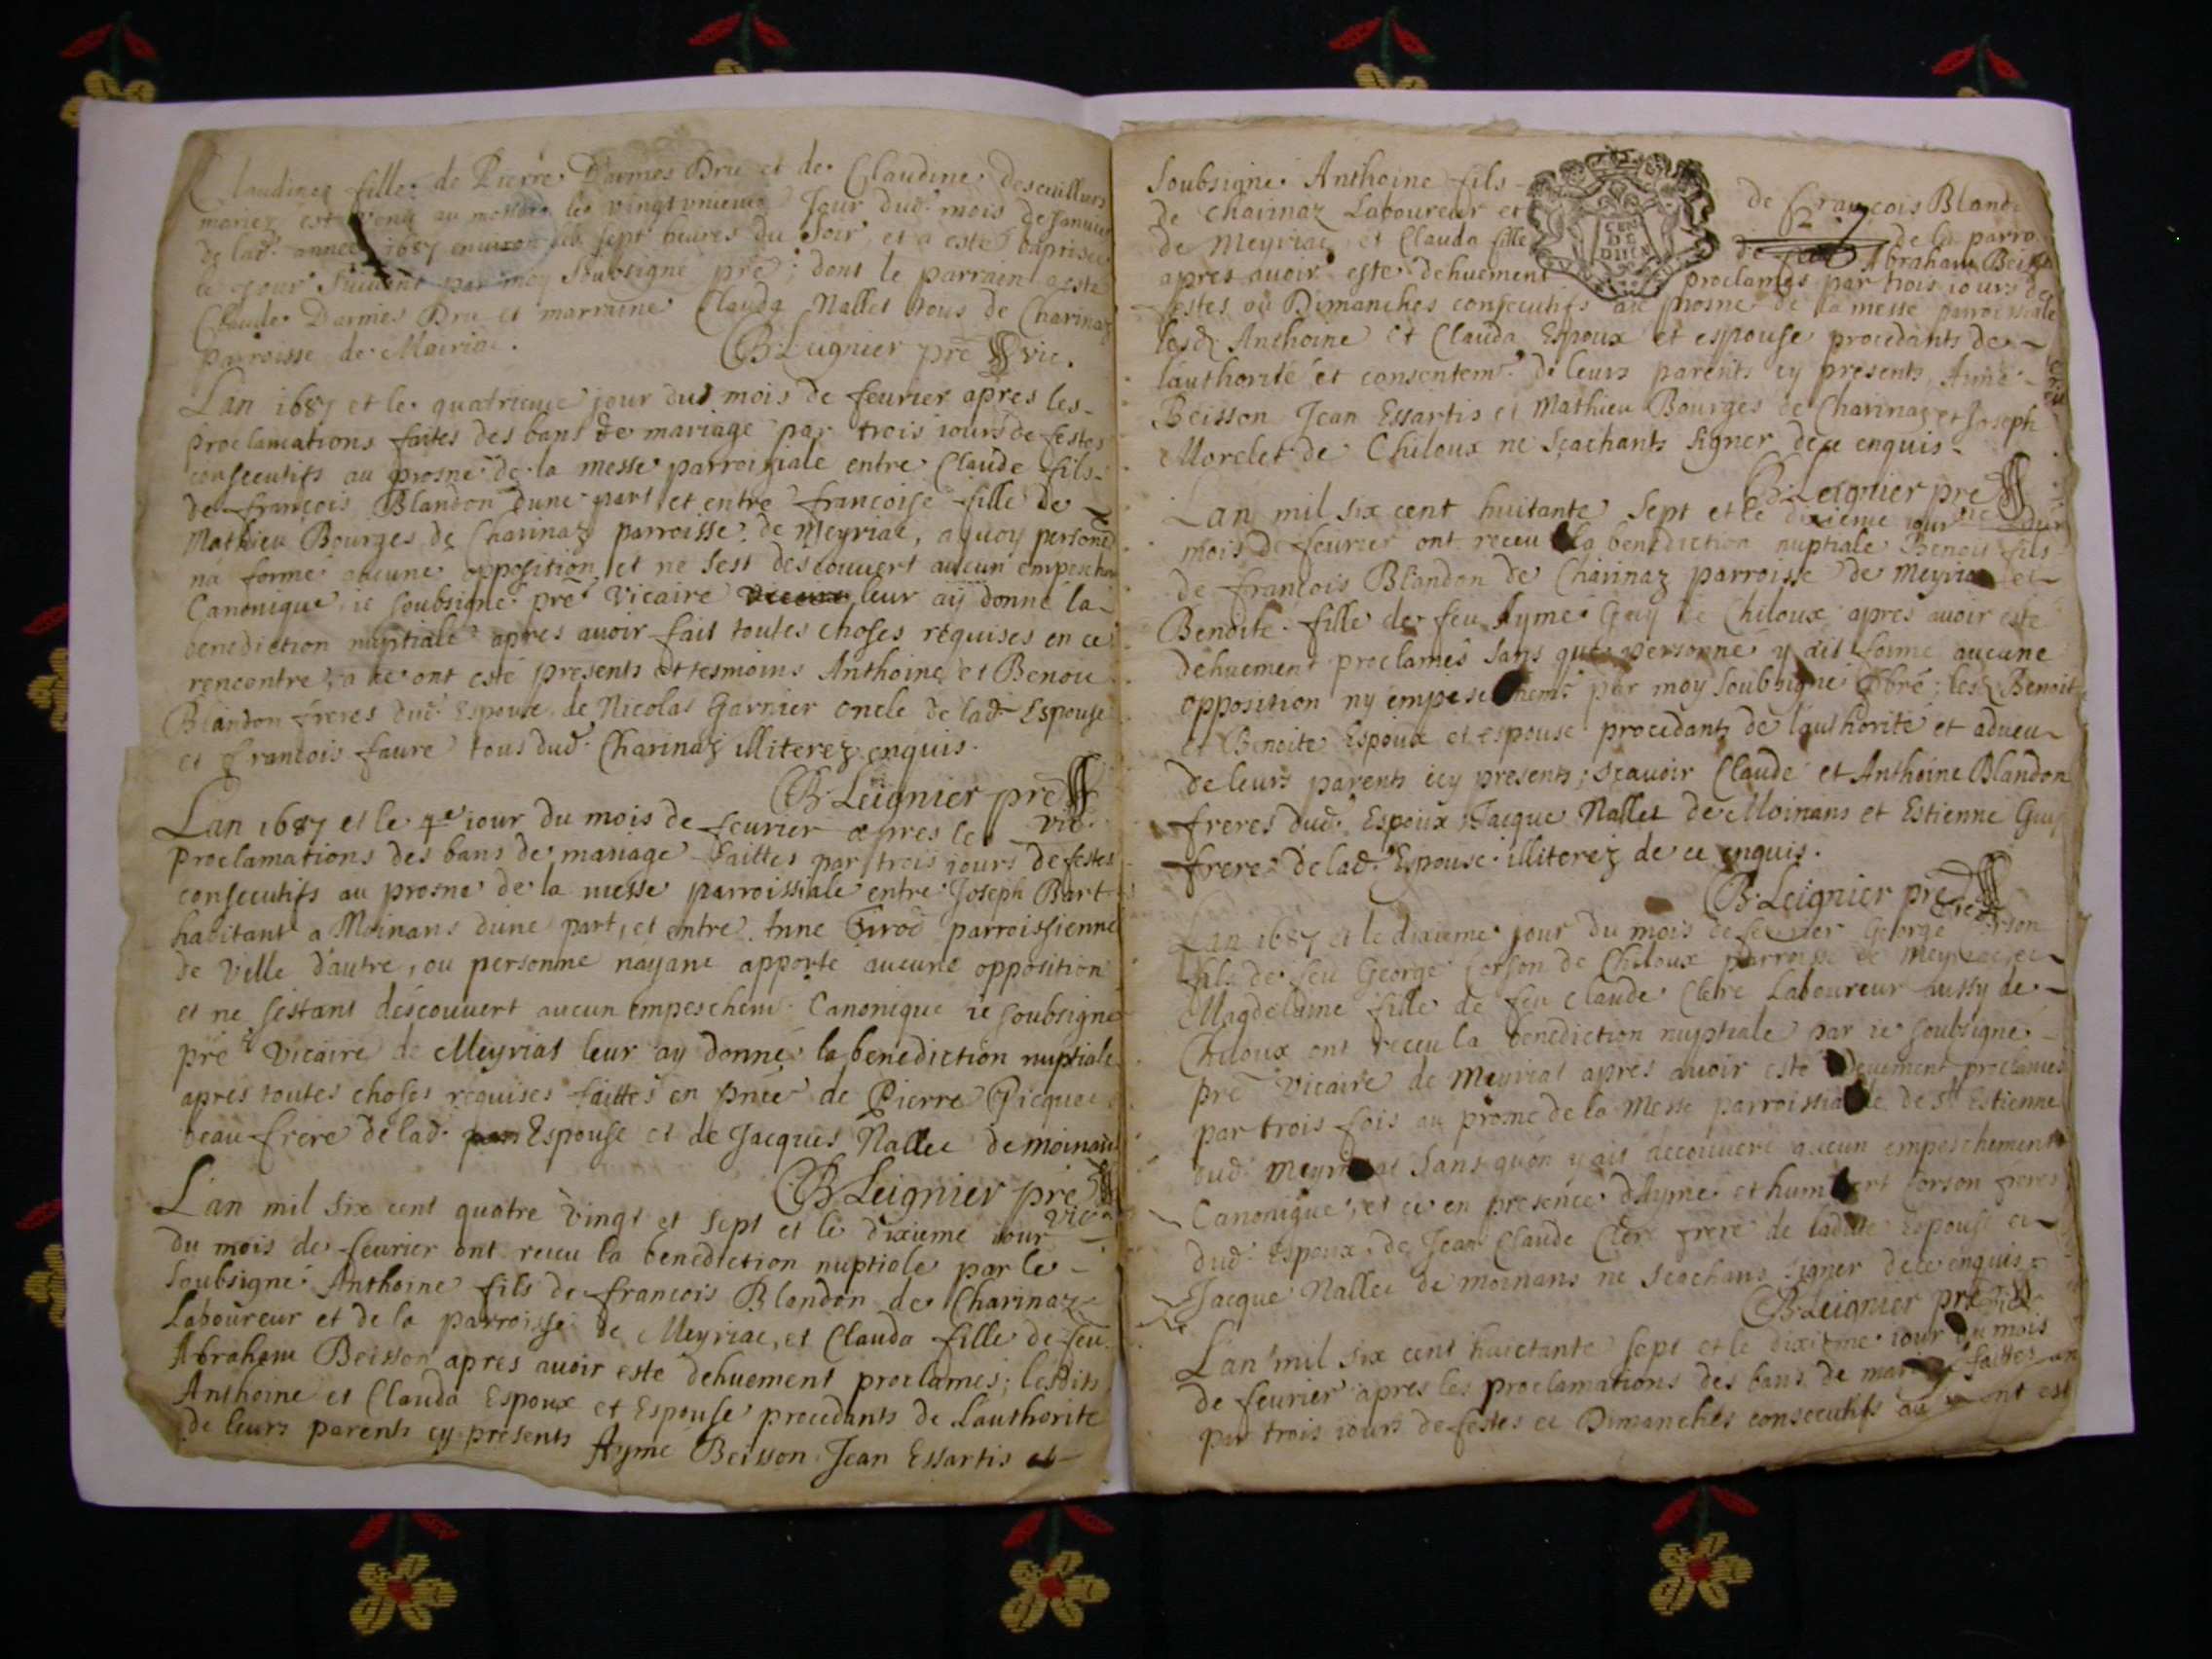 Claudine fille de Pierre Darmes Dru et de Claudine
mariez est venu au monde le vingtunieme Jour dud. mois de Janvier
de lad. année 1687 environ les sept heures du Soir, et a esté baptisée
le jour Suivant par moy Soubsigné pre; dont le parrain a esté
Claude Darmes Dru et marraine Clauda Nallet tous de Charinaz
parroisse de Mairiac.
B. Leignier pre vic.
Lan 1687 et le quatrieme jour dud mois de feurier apres les
proclamations faites des bans de mariage par trois iours de festes
consecutifs au prosne de la messe parroissiale entre Claude fils
de francois Blandon dune part et entre francoise fille de
Mathieu Bourges de Charinaz parroisse de Meyriac, a quoy personne
na formé aucune opposition et ne sest descouvert aucun empeschem
Canonique, ie soubsigné pre Vicaire leur aÿ donné la
benediction nuptiale apres auoir fait toutes choses requises en ce
rencontre, a ce ont esté presents et tesmoins Anthoine et Benoit
Blandon freres dud. Espoux, de Nicolas Garnier oncle de lad. Espouse
et francois faure tous dud. Charinaz illiterez enquis.
B. Leignier pre
vic.
Lan 1687 et le 4e iour du mois de feurier apres les
proclamations des bans de mariage faittes par trois iours de festes
consecutifs au prosne de la messe parroissiale entre Joseph Bart
habitant a Moinans dune part, et entre Anne Girod parroissienne
de Ville d'autre, ou personne nayant apporté aucune opposition
et ne sestant descouvert aucun empeschem. Canonique ie soubsigné
pre Vicaire de Meyriat leur ay donné la benediction nuptiale
apres toutes choses requises faittes en pnce de Pierre Picquet
beau frere de lad. Espouse et de Jacques Nallet de moinans
B. Leignier pre
vic.
L'an mil six cent quatre vingt et sept et le dixieme iour
du mois de feurier ont receu la benediction nuptiale par le
Soubsigné Anthoine fils de francois Blandon de Charinaz
Laboureur et de la parroisse de Meyriac, et Clauda fille de feu
Abraham Beisson apres auoir esté dehuement proclamés; lesdits
Anthoine et Clauda Espoux et Espouse procedants de Lauthorité
de leurs parents cy presents Aymé Beisson Jean Essartis et
Soubsigné Anthoine fils de francois Bland
de Charinaz Laboureur et de la parro
de Meyriac, et Clauda fille de feu Abraham Beisson
apres auoir esté dehuement proclamés par trois iours de
festes ou Dimanches consecutifs au prosne de la messe parroissiale
lesd Anthoine et Clauda Espoux et espouse procedants de
lauthorité et consentem. de leurs parents cy presents, Aimé
Beisson Jean Essartis et Mathieu Bourges de Charinaz et Joseph
Morelet de Chiloux ne Sçachants signer de ce enquis
B. Leignier pre
vic
Lan mil six cent huitante Sept et le dixieme iour du
mois de feurier ont receu la benediction nuptiale Benoit fils
de francois Blandon de Charinaz parroisse de Meyriac et
Benoite fille de feu Aymé Guy de Chiloux apres auoir esté
dehuement proclamés sans que personne y ait formé aucune
opposition ny empeschem par moy soubsigné pbre; lesd Benoit
et Benoite Espoux et espouse procedants de l'authorité et adueu
de leurs parents icy presents; sçavoir Claude et Anthoine Blandon
freres dud. Espoux Jacque Nallet de Moinans et Estienne Guy
frere de lad. Espouse illiterez de ce enquis.
B. Leignier pre
vic
Lan 1687 et le dixieme jour du mois de feurier George Corson
fils de feu George Corson de Chiloux parroisse de Meyriac et
Magdelaine fille de feu Claude Clere Laboureur aussy de
Chiloux ont receu la benediction nuptiale par ie soubsigné
pre Vicaire de Meyriat apres auoir esté deuement proclamés
par trois fois au prosne de la Messe parroissiale de St Estienne
dud. Meyriat Sans quon y ait decouuert aucun empeschement
Canonique, et ce en presence d'Aymé et humbert Corson freres
dud. Espoux, de Jean Claude Clere frere de ladite Espouse et
Jacque Nallet de moinans ne Scachans signer de ce enquis
B. Leignier pre vic
L'an mil six cent huictante sept et le dixieme iour du mois
de feurier apres les proclamations des bans de mariage faittes
par trois iours de festes et Dimanches consecutifs au